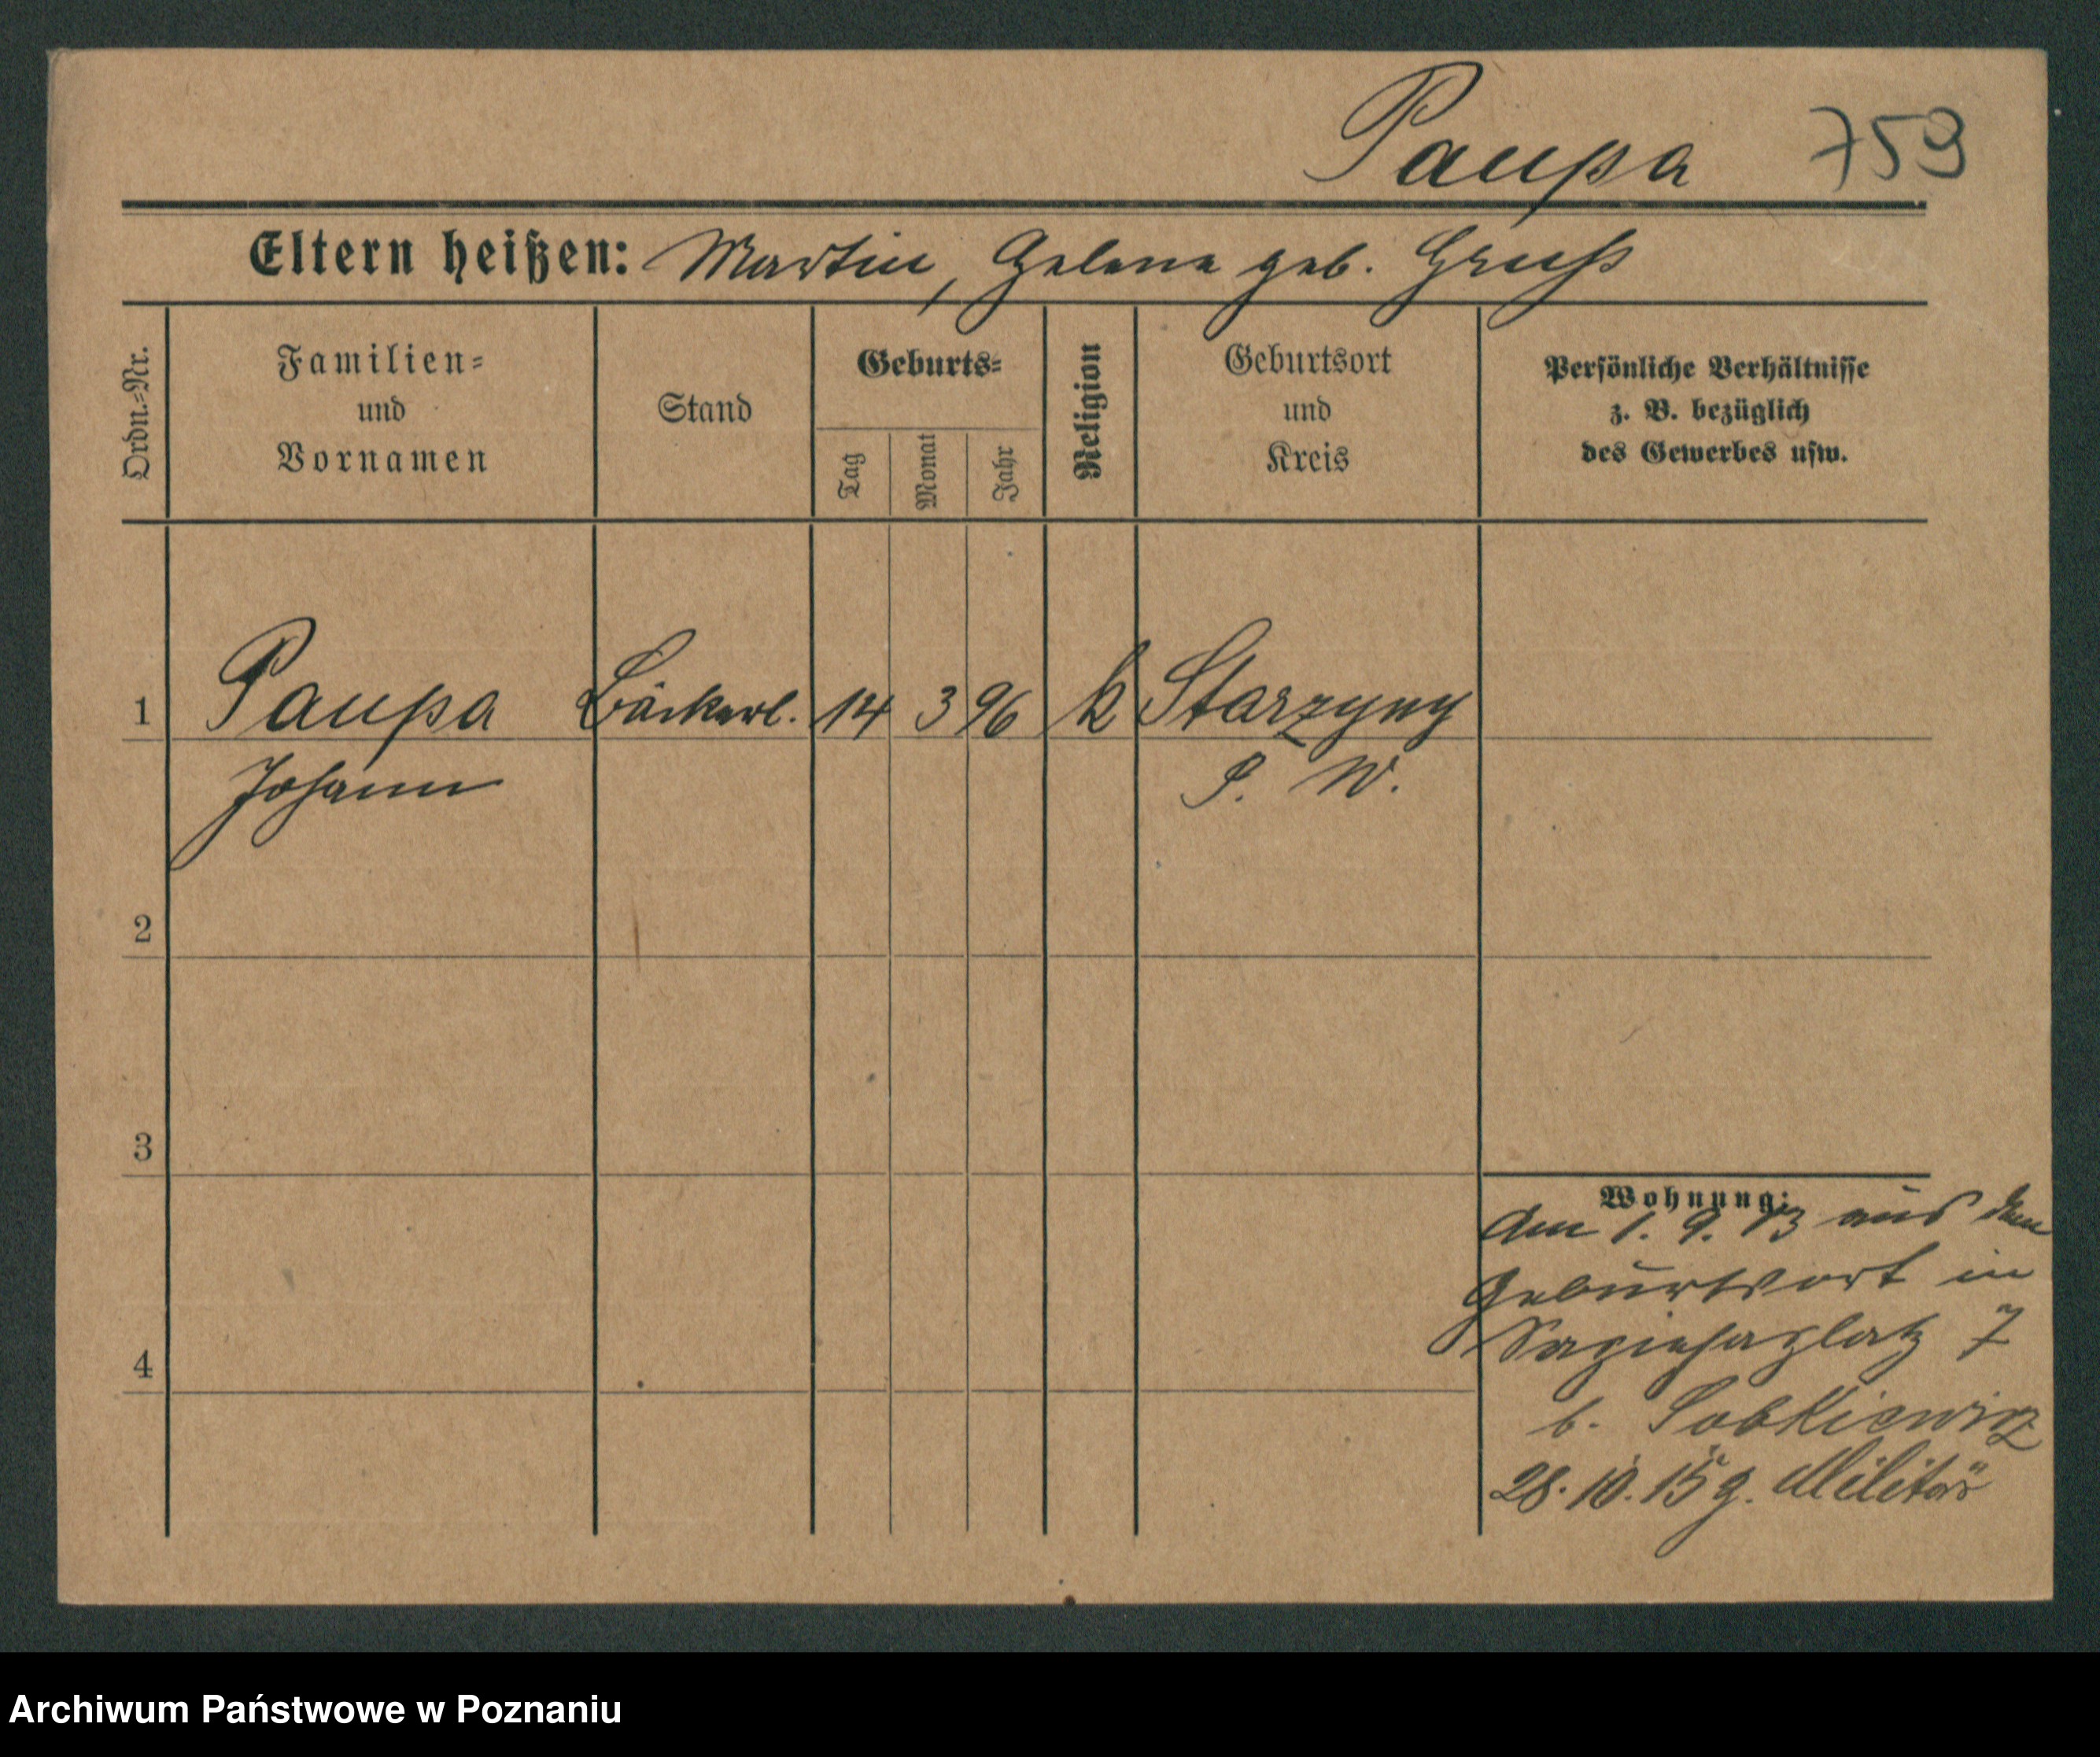 Paupa 759
Eltern heißen: Martin, Helene geb. Gruß
Ordn.-Nr.
Familien-
und
Vornamen
Stand
Geburts-
Tag
Monat
Jahr
Religion
Geburtsort
und
Kreis
Persönliche Verhältnisse
z. B. bezüglich
des Gewerbes usw.
1 Paupa Bäckerl. 14 3 96 k Starzyny
Johann P. W.
2
3
4
Wohnung:
Am 1. 9. 13 aus dem
Geburtsort in
Sapiehaplatz 7
b. Sobkiewicz
28.10.15 g. Militär
Archiwum Państwowe w Poznaniu